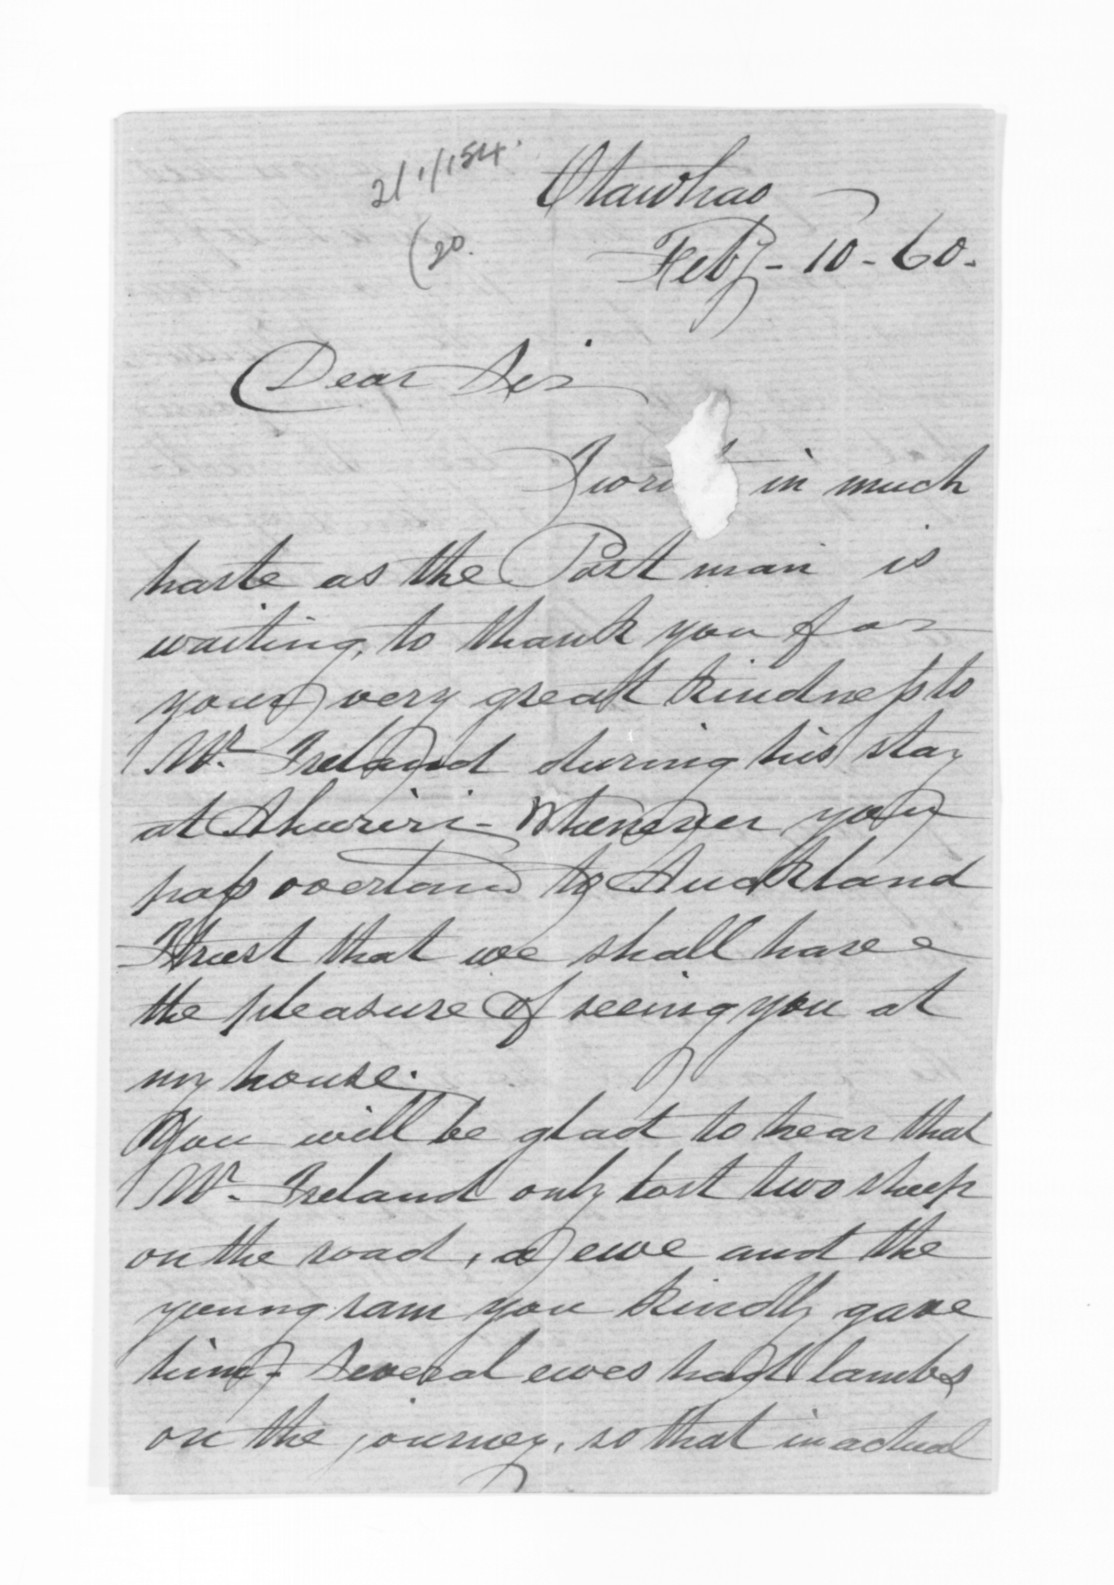 21/1/154.
(20.
Otawhao
Feby - 10 - 60.
Dear Sir
I in much
haste as the Postman is
waiting, to thank you for
your very great kindness to
Mr. Ireland during his stay
at Ahuriri - Whenever you
pass overland to Auckland
I trust that we shall have
the pleasure of seeing you at
my house.
You will be glad to hear that
Mr. Ireland only lost two sheep
on the road, a ewe and the
young ram you kindly gave
him - Several ewes had lambs
on the journey, so that in actual